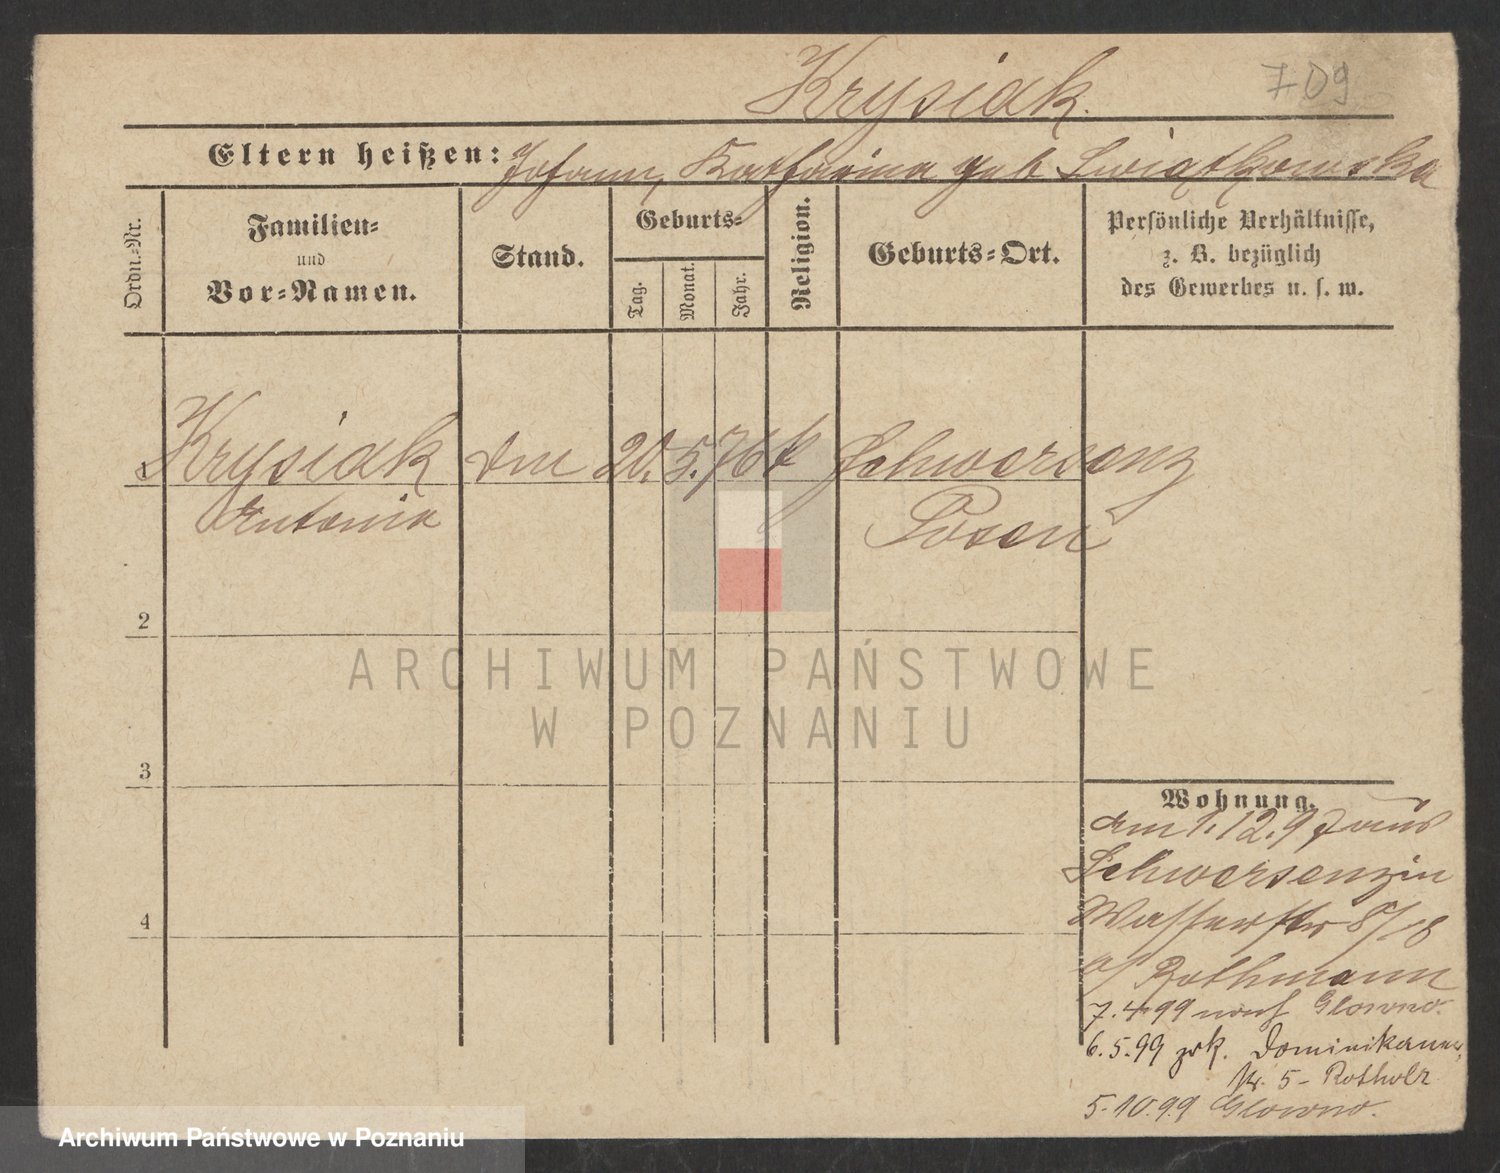 Krysiak.
709
Eltern heißen: Johann, Katharina geb Swiatkowska
Ordn.-Nr.
Familien-
und
Vor-Namen.
Stand.
Geburts-
Tag.
Monat.
Jahr.
Religion.
Geburts-Ort.
Persönliche Verhältnisse,
z. B. bezüglich
des Gewerbes u. s. w.
1 Krysiak 20. 5. 76 k Schwersenz
Antonia Posen
2
3
4
Wohnung.
am 1.12.97 aus
Schwersenz in
Wasserstr 8/18
Rothmann
7.4.99 nach Glowno.
6.5.99 zrk. Dominikaner
5 - Rotholz
5.10.99 Glowno.
ARCHIWUM PAŃSTWOWE
W POZNANIU
Archiwum Państwowe w Poznaniu